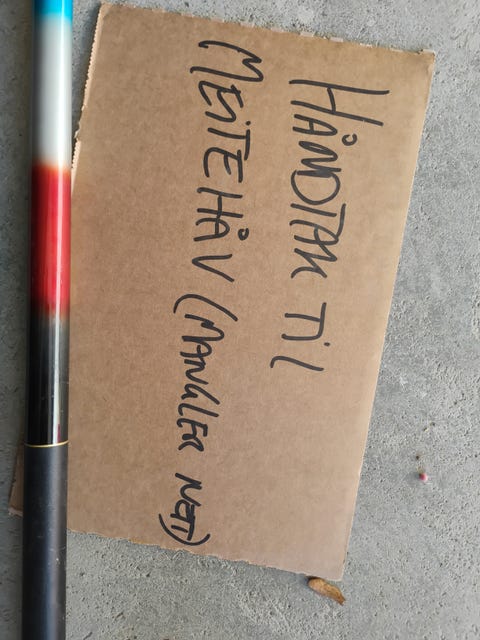 HÅNDTAK TiL
MEITEHÅV (MANGLER NETT)